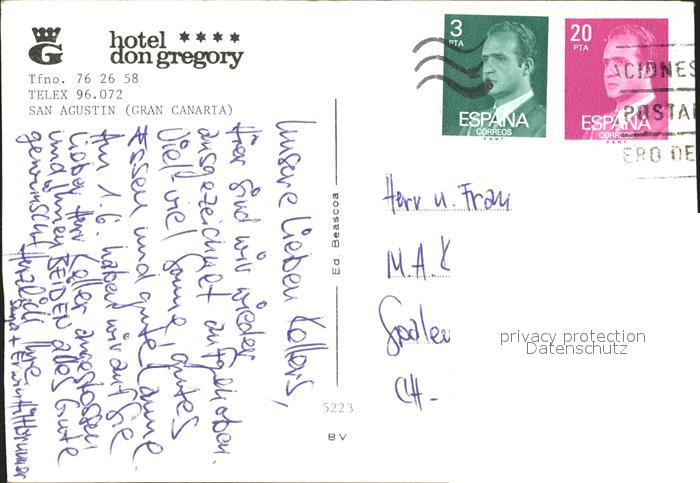 hotel ★★★★
don gregory
G
Tfno. 76 26 58
TELEX 96.072
SAN AGUSTIN (GRAN CANARIA)
3
PTA
ESPAÑA
CORREOS
F.N.M.T.
20
PTA
ESPAÑA
CORREOS
F.N.M.T.
ACIONES
POSTA
ERO DE
Unsere lieben Kollers,
Hier sind wir wieder
ausgezeichnet aufgehoben.
Viel-viel Sonne, gutes
Essen und gute Laune.
Am 1.6. haben wir auf Sie
lieber Herr Koller angestossen
und Ihnen BEIDEN alles Gute
gewünscht! Herzlich Ihre
+ Erwin
Ed. Beascoa
5223
BV
Herr u. Frau
M.A. K
CH -
privacy protection
Datenschutz